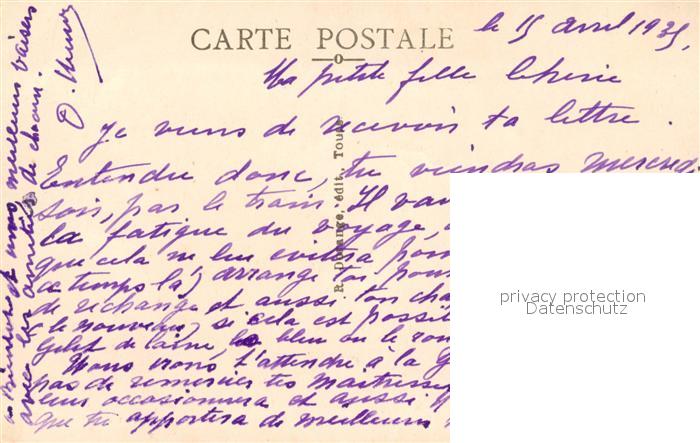 CARTE POSTALE
le 15 avril 1935,
Ma petite fille chérie
Je viens de recevoir ta lettre.
Entendu donc, tu viendras mercredi
soir, par le train. Il vau
la fatigue du voyage,
que cela ne lui évitera
ce temps là, arrange toi pour
de rechange et aussi ton cha
(le nouveau) si cela est possib
Gilet de laine, le bleu ou le
Nous irons t'attendre à la g
pas de remercier tes Maîtresses
leur occasionnera et aussi
que tu apportera de meilleurs
à Bientôt et nos meilleurs baisers
avec les amitiés de chacun.
R. Dorange, édit., Tours
privacy protection
Datenschutz